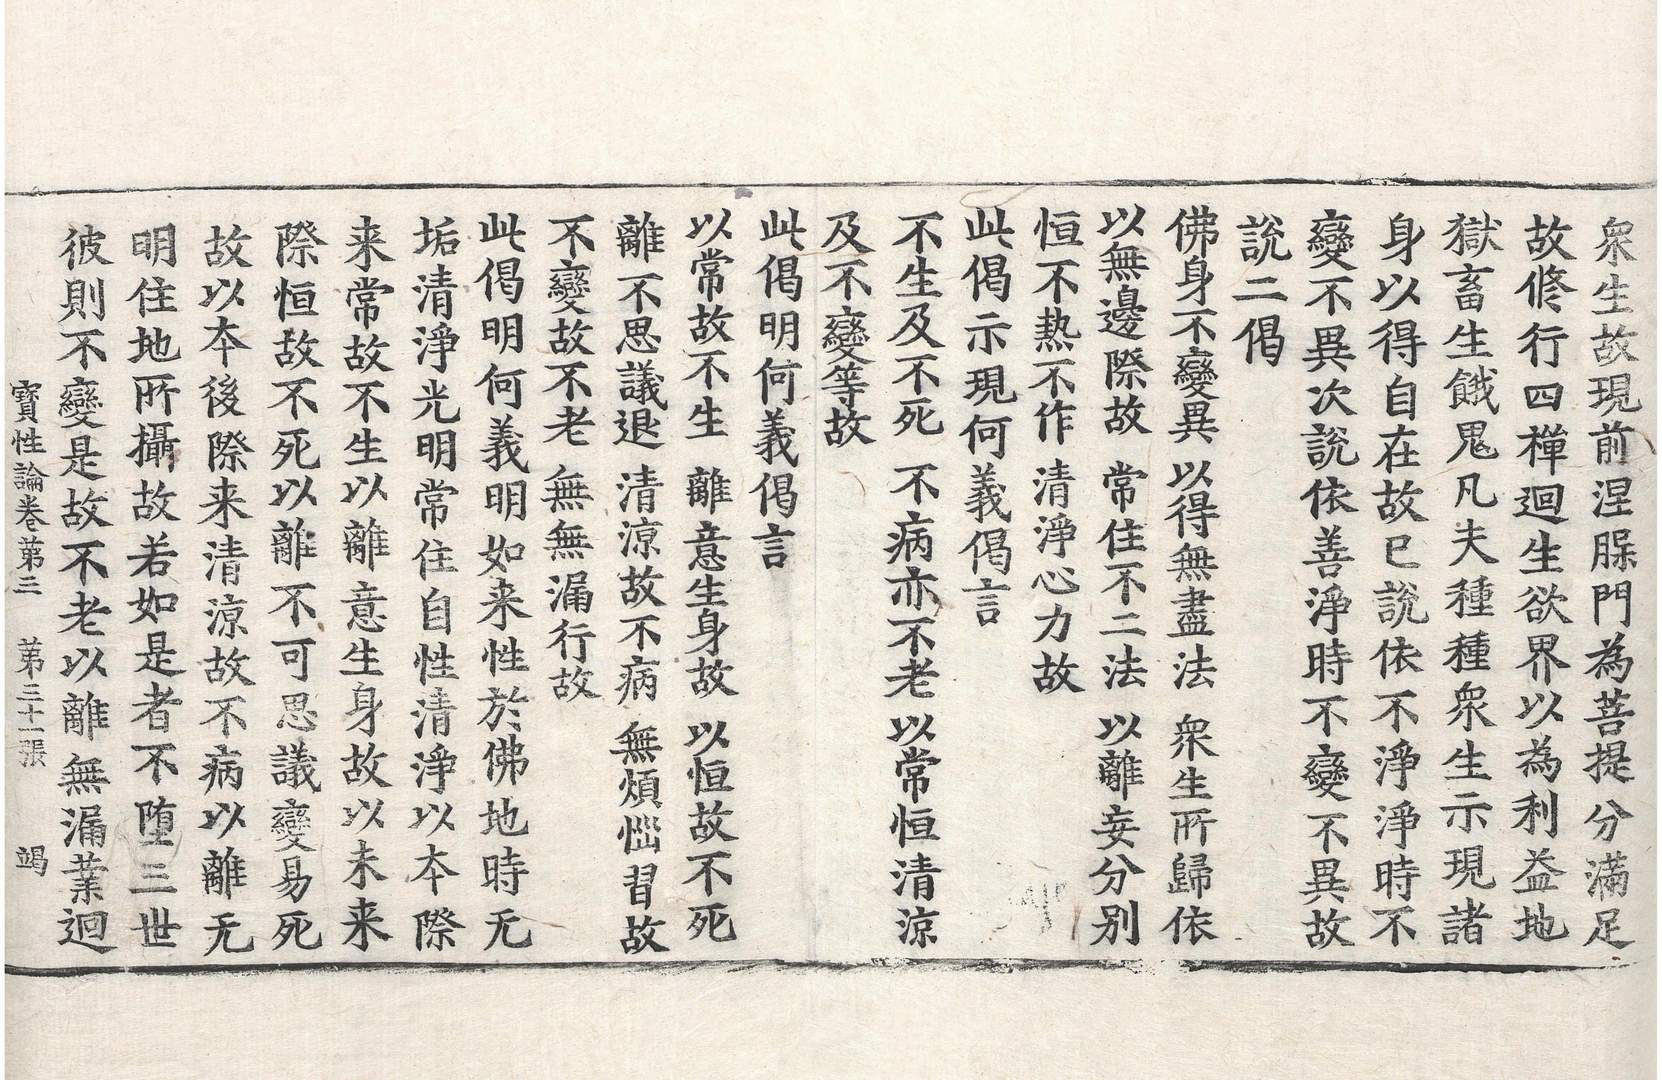 衆生故現前涅槃門為菩提分滿足
故修行四禪迴生欲界以為利益地
獄畜生餓鬼凡夫種種衆生示現諸
身以得自在故已說依不淨淨時不
變不異次說依善淨時不變不異故
說二偈
佛身不變異 以得無盡法 衆生所歸依
以無邊際故 常住不二法 以離妄分別
恒不熱不作 清淨心力故
此偈示現何義偈言
不生及不死 不病亦不老 以常恒清涼
及不變等故
此偈明何義偈言
以常故不生 離意生身故 以恒故不死
離不思議退 清涼故不病 無煩惱習故
不變故不老 無無漏行故
此偈明何義明如来性於佛地時无
垢清淨光明常住自性清淨以本際
来常故不生以離意生身故以未来
際恒故不死以離不可思議變易死
故以本後際来清涼故不病以離无
明住地所攝故若如是者不墮三世
彼則不變是故不老以離無漏業迴
寶性論卷第三 第三十一張 竭